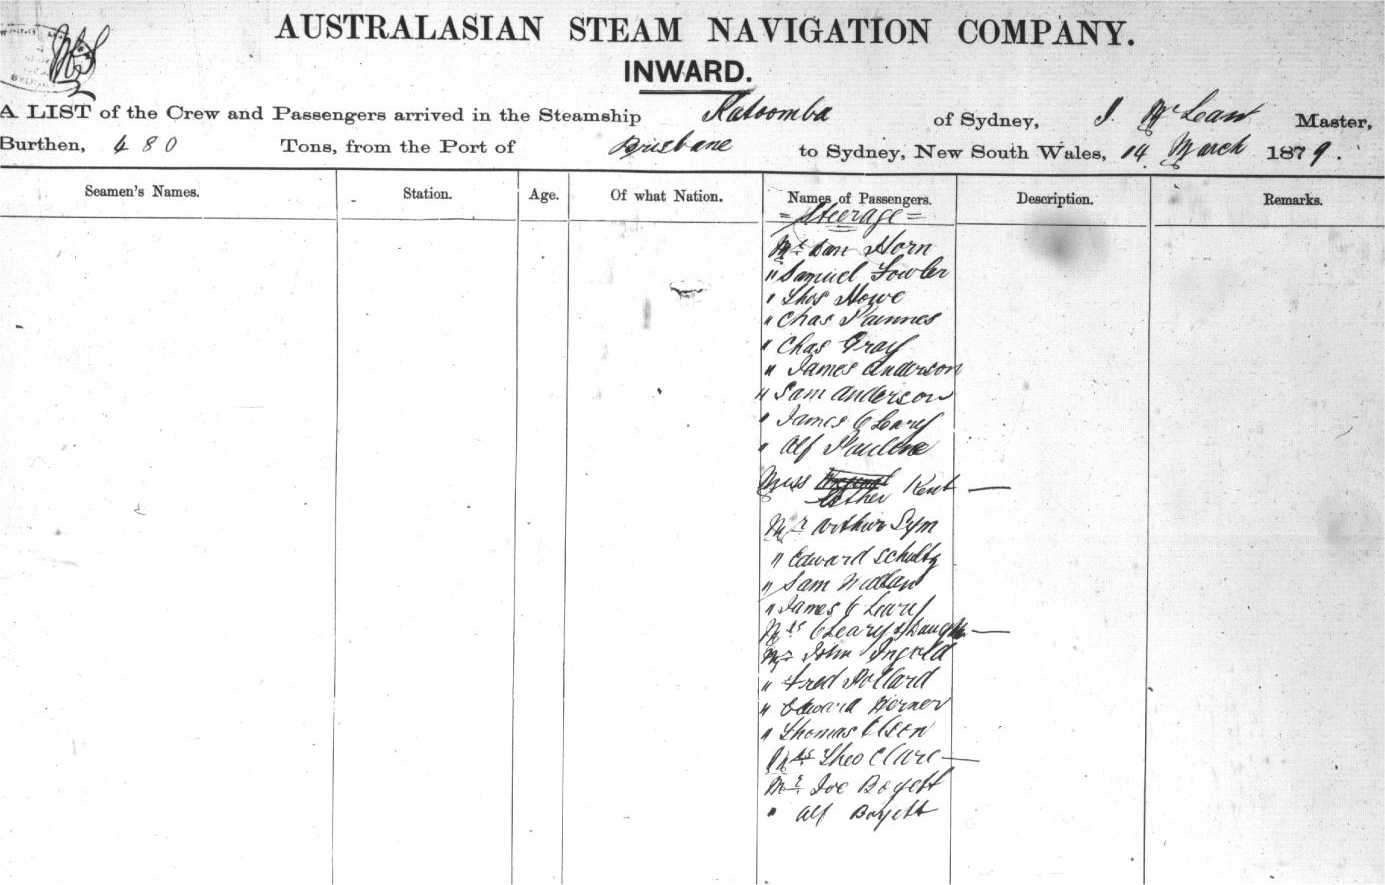 AUSTRALASIAN STEAM NAVIGATION COMPANY.
INWARD.
A LIST of the Crew and Passengers arrived in the Steamship Katoomba of Sydney, J. McLean Master,
Burthen, 480 Tons, from the Port of Brisbane to Sydney, New South Wales, 14 March 1879.
Seamen's Names. Station. Age. Of what Nation. Names of Passengers. Description. Remarks.
= Steerage =
Mr Dan Horn
" Samuel Fowler
" Thos Howe
" Chas
" Chas Gray
" James Anderson
" Sam Anderson
" James O Leary
" Alf
Miss Esther Kent —
Mr Arthur Sym
" Edward Schultz
" Sam
" James O Leary
Mrs O Leary & Daught —
Mr John Ingold
" Fred Pollard
" Edward
" Thomas Olson
Mrs Theo Clare —
Mr Joe Boyett
" Alf Boyett